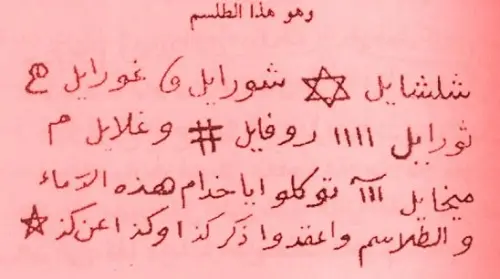 وهو هذا الطلسم
شلشايل ✡ شورايل و غورايل
ثورايل ١١١١ روفايل # وغلايل م
ميخايل ١١١ توكلوا ياخدام هذه الاسماء
و الطلاسم واعقدوا ذكر كذا وكذا عن كذ ☆